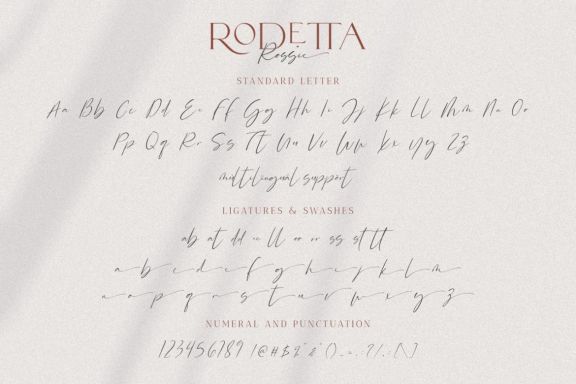 RODETTA
Rossie
STANDARD LETTER
Aa Bb Cc Dd Ee Ff Gg Hh Ii Jj Kk Ll Mm Nn Oo
Pp Qq Rr Ss Tt Uu Vv Ww Xx Yy Zz
multilingual support
LIGATURES & SWASHES
ab at dd ee ll oo or ss st tt
a b c d e f g h i j k l m
n o p q r s t u v w x y z
NUMERAL AND PUNCTUATION
123456789 !@#$